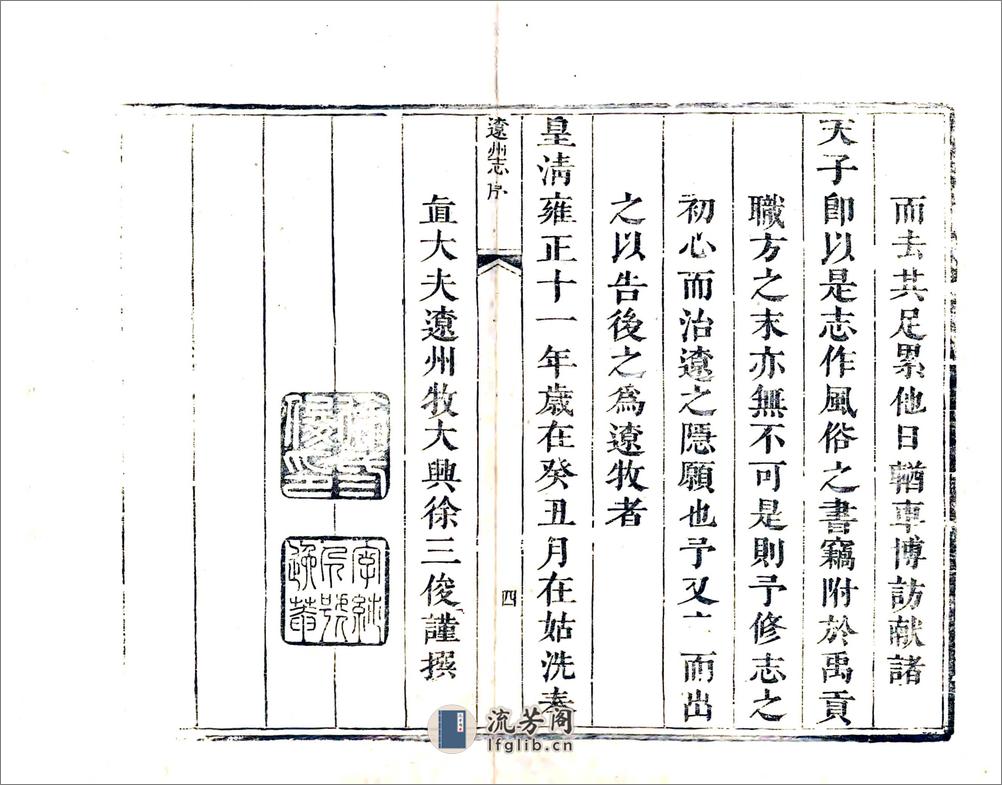 而去其足累他日輶車博訪献諸
天子即以是志作風俗之書竊附於禹貢
職方之末亦無不可是則予修志之
初心而治遼之隱願也予又 而出
之以告後之為遼牧者
皇清雍正十一年歳在癸丑月在姑洗奉
直大夫遼州牧大興徐三俊謹撰
遼州志序
四
流芳阁
lfglib.cn